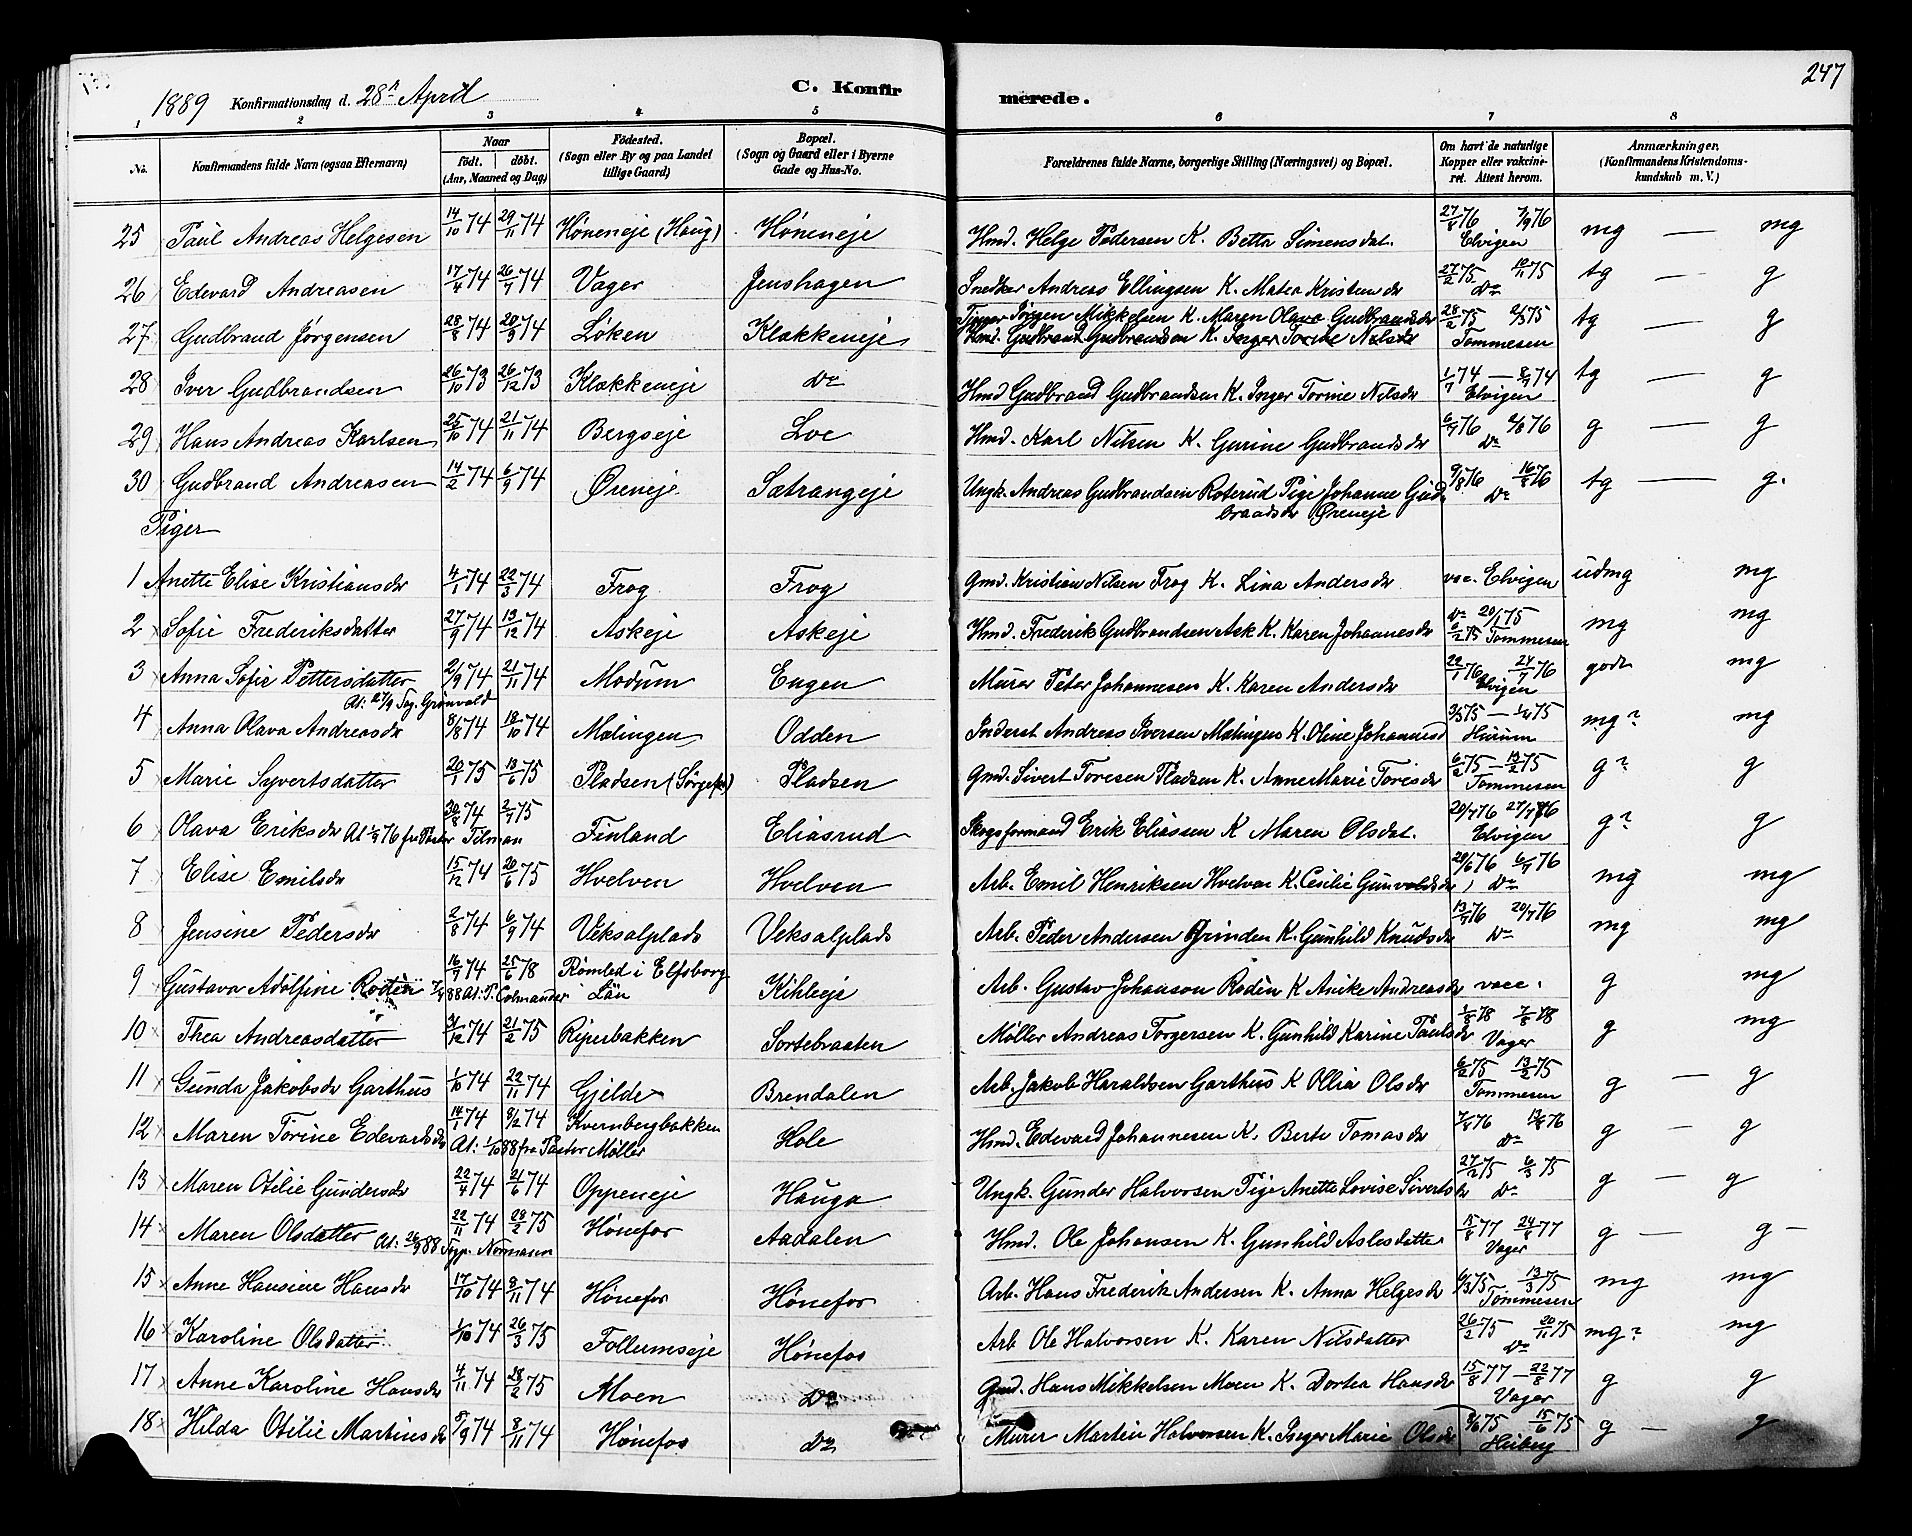 1889 Konfirmationsdag d. 28de April C. Konfir merede. 247
1 2 3 4 5 6 7 8
No. Konfirmandens fulde Navn (ogsaa Efternavn) Naar født. døbt. (Aar, Maaned og Dag) Fødested. (Sogn eller By og paa Landet tillige Gaard) Bopæl. (Sogn og Gaard eller i Byerne Gade og Hus-No. Forældrenes fulde Navne, borgerlige Stilling (Næringsvei) og Bopæl. Om havt de naturlige Kopper eller vakcineret. Attest herom. Anmærkninger. (Konfirmandens Kristendomskundskab m. V.)
25 Paul Andreas Helgesen 14/10 74 29/11 74 Høneneje (Haug) Høneneje Hmd. Helge Pedersen K. Betta Simensdat. 27/8 76 7/9 76 Elvigen mg — mg
26 Edevard Andreasen 17/4 74 26/7 74 Vager Jenshagen Snedker Andreas Ellingsen K. Matea Kristensdr 27/2 75 10/11 75 Do tg — g
27 Gudbrand Jørgensen 28/8 74 20/9 74 Løken Klækkeneje Jørgen Mikkelsen K. Maren Olava Gudbrandsdr 28/2 75 75 Tommesen tg — g
Hmd. Gudbrand Gudbrandsen K. Inger Torine Nilsdr
28 Iver Gudbrandsen 26/10 73 26/12 73 Klækkeneje Do Hmd Gudbrand Gudbrandsen K. Inger Torine Nilsdr 1/7 74 — 8/7 74 Elvigen tg — g
29 Hans Andreas Karlsen 25/10 74 21/11 74 Bergseje Loe Hmd. Karl Nilsen K. Gurine Gudbrandsdr 6/7 76 76 Do g — g
30 Gudbrand Andreasen 14/2 74 6/9 74 Øreneje Sætrangeje Ungk. Andreas Gudbrandsen Roterud Pige Johanne Gud 9/8 76 16/8 76 Do tg — g.
brandsdr Øreneje
Piger
1 Anette Elise Kristiansdr 4/1 74 22/3 74 Frog Frog Gmd. Kristian Nilsen Frog K. Lina Andersdr vac. Elvigen udmg mg
2 Sofie Frederiksdatter 27/9 74 13/12 74 Askeje Askeje Hmd. Frederik Gudbrandsen Ask K. Karen Johannesdr Do 20/1 75 6/2 75 Tommesen mg mg
3 Anna Sofie Pettersdatter 2/9 74 21/11 74 Modum Engen Murer Peter Johannesen K. Karen Andersdr 22/1 76 24/7 76 Elvigen godt mg
At: 27/9 Sog. Grønvold
4 Anna Olava Andreasdr 8/8 74 18/10 74 Mælingen Odden Inderst Andreas Iversen Mælingen K. Oline Johannesd 3/3 75 — 1/4 75 Hurum mg? mg
5 Marie Syvertsdatter 20/1 75 13/6 75 Pladsen (Sørgefos) Pladsen Gmd. Sivert Toresen Pladsen K. Anne Marie Toresdr 6/2 75 — 13/2 75 Tommesen g? g
6 Olava Eriksdr At 76 fra Pastor Tilman 30/8 74 2/7 75 Finland Eliasrud Skogsformand Erik Eliassen K Maren Olsdat. 20/7 76 27/7 76 Elvigen g? g
7 Elise Emilsdr 15/12 74 20/6 75 Hvelven Hvelven Arb. Emil Henriksen Hvelven K. Cesilie Gunvoldsdr 29/6 76 6/7 76 Do mg mg
8 Jensine Pedersdr 2/8 74 6/9 74 Veksalplads Veksalplads Arb. Peder Andersen Grinden K. Gunhild Knudsdr 13/7 76 20/7 76 Do mg mg
9 Gustava Adolfine Rodin 16/7 74 25/6 78 Rømled i Elfsborg Län Kihleeje Arb. Gustav Johanson Rodin K Anike Andreasdr vacc. g mg
7/9 88 At. P. Colmander
10 Thea Andreasdatter 31/12 74 21/2 75 Riperbakken Sortebraaten Møller Andreas Torgersen K. Gunhild Karine Paulsdr 1/8 78 7/8 78 Vager g mg
11 Gunda Jakobsdr Garthus 1/10 74 22/11 74 Gjelde Brendalen Arb. Jakob Haraldsen Garthus K Ollia Olsdr 6/2 75 13/2 75 Tommesen g — g
12 Maren Torine Edevardsdr 14/1 74 8/2 74 Kvernbergbakken Hole Hmd. Edevard Johannesen K. Berte Tomasdr 76 76 Do g — g
At: 1/10 88 fra Pastor Møller
13 Maren Otilie Gundersdr 22/4 74 21/6 74 Oppeneje Hauga Ungk. Gunder Halvorsen Pige Anette Lovise Sivertsdr 27/2 75 6/3 75 Do g — g
14 Maren Olsdatter 22/11 74 28/2 75 Hønefos Aadalen Hmd. Ole Johansen K. Gunhild Aslesdatter 15/8 77 24/8 77 Vager g — g —
At: 26/9 88 Sogp. Normann
15 Anne Hansine Hansdr 17/10 74 8/11 74 Hønefos Hønefos Arb. Hans Frederik Andersen K. Anna Helgesdr 6/3 75 13/3 75 Tommesen mg mg
16 Karoline Olsdatter 1/10 74 26/3 75 Follumseje Hønefos Arb Ole Halvorsen K. Karen Nilsdatter 26/2 75 20/11 75 Do mg? mg
17 Anne Karoline Hansdr 4/11 74 28/2 75 Moen Do Gmd. Hans Mikkelsen Moen K. Dortea Hansdr 15/8 77 — 22/8 77 Vager g g
18 Hilda Otilie Martinsdr 8/9 74 8/11 74 Hønefos Do Murer Martin Halvorsen K. Inger Marie Olsdr 8/6 75 15/6 75 Heiberg g — g